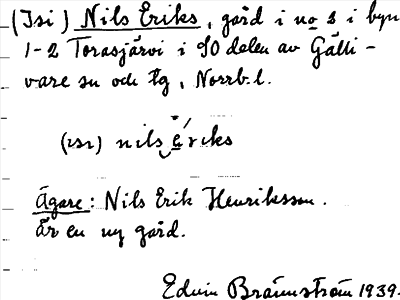 (Isi) Nils Eriks, gård i no 3 i byn
1-2 Torasjärvi i SO delen av Gälli-
vare sn och tg, Norrb.l.
(ısı) nils ériks
Ägare: Nils Erik Henriksson.
Är en ny gård.
Edvin Brännström 1939.